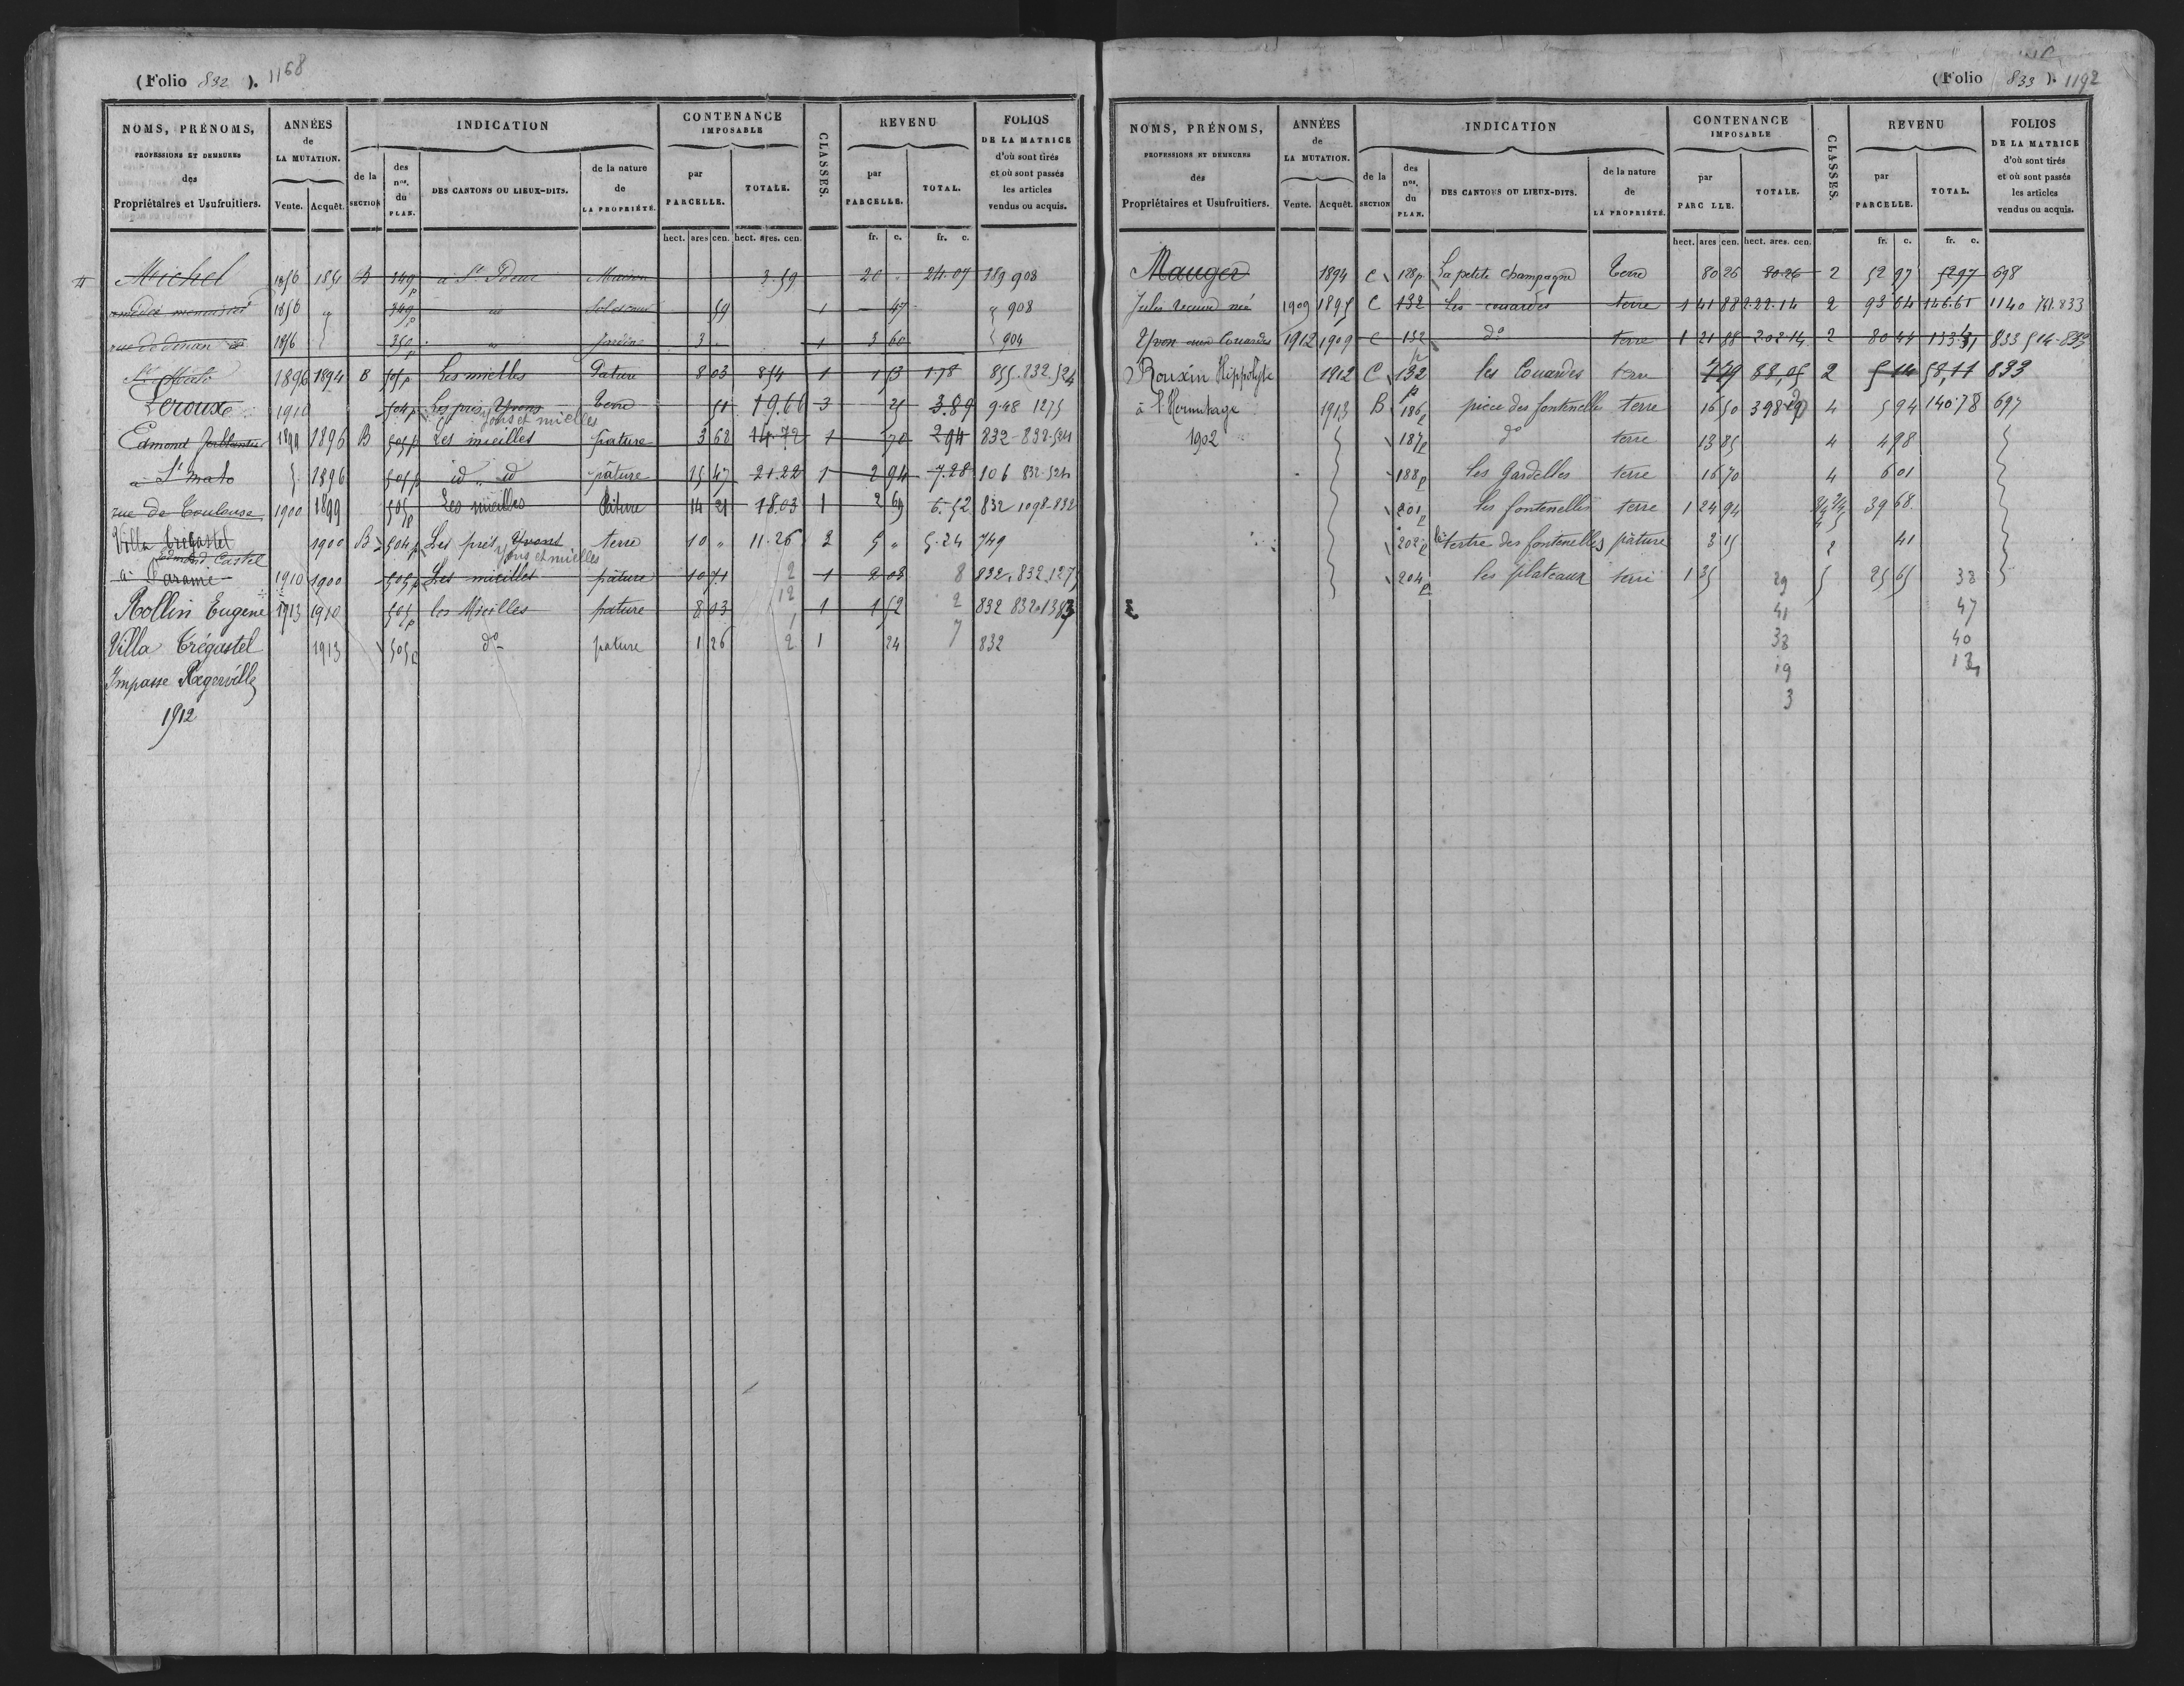 (Folio 832 ). 1168
NOMS, PRÉNOMS,
PROFESSIONS ET DEMEURES
des
Propriétaires et Usufruitiers.
ANNÉES
de
LA MUTATION.
Vente. Acquêt.
INDICATION
de la
SECTION
des
nos.
du
PLAN.
DES CANTONS OU LIEUX-DITS.
de la nature
de
LA PROPRIÉTÉ.
CONTENANCE
IMPOSABLE
par
PARCELLE.
TOTALE.
CLASSES.
REVENU
par
PARCELLE.
TOTAL.
FOLIOS
DE LA MATRICE
d'où sont tirés
et où sont passés
les articles
vendus ou acquis.
hect. ares cen. hect. ares. cen. fr. c. fr. c.
Michel 1856 1854 B 349p à St Maison 3.59 20 24.07 189 908
menuisier 1856 349p id 59 1 47 908
rue de dinan 1856 350p id Jardin 3 1 3 60 904
St Malo 1896 1894 B 505p Les mielles Pature 8 03 8 54 1 1 53 1.78 855.832.524
Leroux 1910 504p Les prés Yvons Terre 51 19.66 3 25 3.89 948 1275
Jons et mielles
Edmond 1899 1896 B 505p Les mieilles pature 3 62 14.72 1 70 2.94 832-832-524
à St malo 1896 505p id id pâture 15 47 21.22 1 2 94 7.28 106 832-524
rue de Toulouse 1900 1899 505p Les mieilles Pâture 14 21 18.03 1 2 69 6.52 832 1098-832
Villa Tregastel 1900 B 504p Les prés Yvons terre 10 " 11.26 2 5 " 5.24 749
Edmond Castel Jons et mielles
à Paramé 1910 1900 505p Les mieilles pâture 10 71 2 1 2 03 8 832.832.1275
Rollin Eugene 1913 1910 505p les Mieilles pature 8 03 12 1 1 52 2 832 832.1383
Villa Trégastel 1913 505p do pature 1 26 2 1 24 7 832
Impasse Regerville
1912
(Folio 833 ). 1192
NOMS, PRÉNOMS,
PROFESSIONS ET DEMEURES
des
Propriétaires et Usufruitiers.
ANNÉES
de
LA MUTATION.
Vente. Acquêt.
INDICATION
de la
SECTION
des
nos.
du
PLAN.
DES CANTONS OU LIEUX-DITS.
de la nature
de
LA PROPRIÉTÉ.
CONTENANCE
IMPOSABLE
par
PARC LLE.
TOTALE.
CLASSES.
REVENU
par
PARCELLE.
TOTAL.
FOLIOS
DE LA MATRICE
d'où sont tirés
et où sont passés
les articles
vendus ou acquis.
hect. ares cen. hect. ares. cen. fr. c. fr. c.
Mauger 1894 C 128p La petite Champagne Terre 80 26 80.26 2 52 97 52 97 698
Jules veuve née 1909 1895 C 132 Les couardes terre 1 41 88 2.22.14 2 93 64 146.61 1140 833
Yvon aux Couardes 1912 1909 C 132 do terre 1 21 88 2.02.14 2 80 44 833 514-833
Rouxin Hippolyte 1912 C 132p les Couardes terre 7 79 88,05 2 5 14 58,11 833
à l'Hermitage 1913 B 186p pièce des fontenelles terre 16 50 398 29 4 5 94 140.78 697
1902 187p do terre 13 85 4 4 98
188p les Gardelles terre 16 70 4 6 01
201p les fontenelles terre 1 24 94 39 68
202p le tertre des fontenelles pâture 3 15 2 41
204p les plateaux terre 1 35 29 5 25 65 38
41 47
38 40
19 12
3